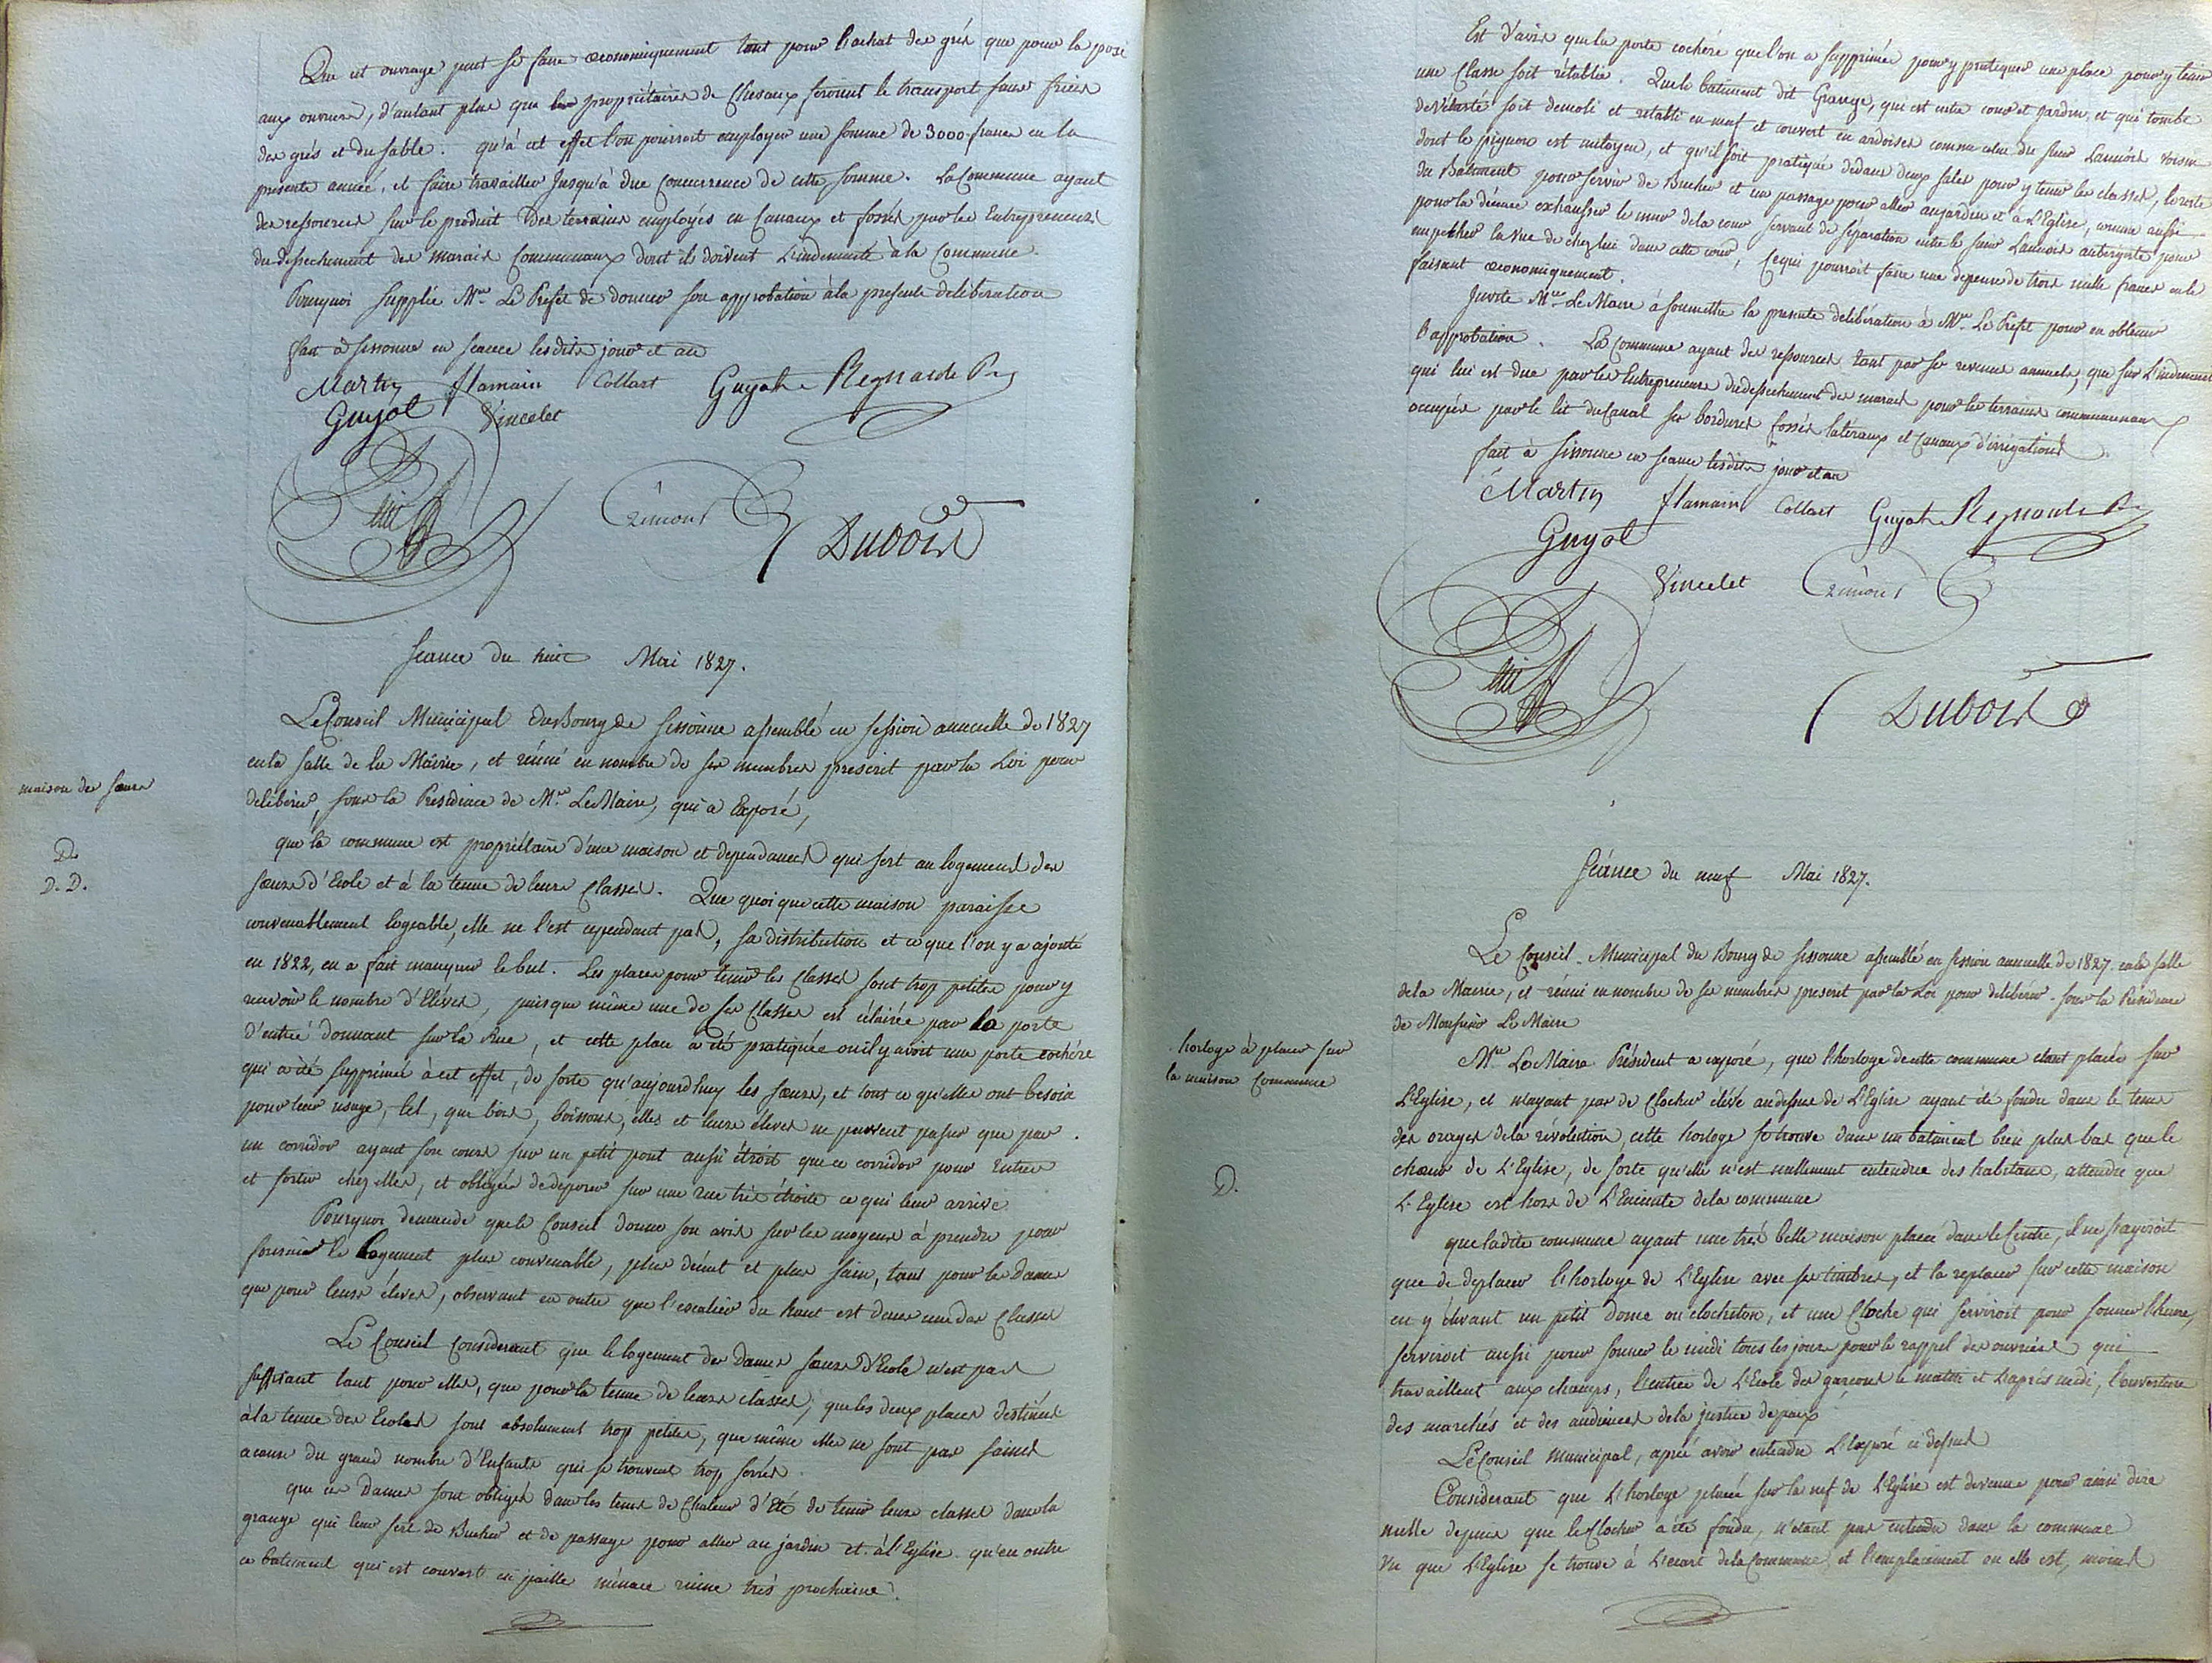 Que cet ouvrage peut se faire œconomiquement tant pour l'achat des grés que pour la pose
aux ouvriers, d'autant plus que les propriétaires de Chevaux feroient le transport sans frais
des grés et du sable. qu'à cet effet l'on pourroit employer une somme de 3000 francs en la
présente année, et faire travailler jusqu'à due concurrence de cette somme. La Commune ayant
des ressources sur le produit des terrains employés en Canaux et fossés par les Entrepreneurs
du dessechement des marais Communaux dont ils doivent L'indemnité à la Commune.
Pourquoi supplie Mr. Le Prefet de donner son approbation à la presente deliberation
fait à Sissonne en séance lesdits jour et an
Martin flamain Collart Guyot Regnard
Guyot Vincelet
Crimont Dubois
Seance du huit Mai 1827.
Le Conseil Municipal du Bourg de Sissonne assemblé en session annuelle de 1827
maison des sœurs
en la salle de la Mairie, et réuni en nombre de ses membres prescrit par la Loi pour
deliberer, sous la Presidence de Mr. Le Maire, qui a Exposé,
D.
D. D.
que la commune est propriétaire d'une maison et dependances qui sert au logement des
sœurs d'Ecole et à la tenue de leurs Classes. Que quoi que cette maison paraisse
convenablement logeable, elle ne l'est cependant pas, sa distribution et ce que l'on y a ajouté
en 1822, en a fait manquer le but. Les places pour tenir les Classes sont trop petites pour y
recevoir le nombre d'Elèves, puisque même une de ses Classes est éclairée par la porte
d'entrée donnant sur la Rue, et cette place a été pratiquée où il y avoit une porte cochère
qui a été supprimée à cet effet, de sorte qu'aujourd'huy les sœurs, et tout ce qu'elles ont besoin
pour leur usage, tel, que bois, boissons, elles et leurs élèves ne peuvent passer que par
un corridor ayant son cours sur un petit pont aussi étroit que ce corridor pour Entrer
et sortir chez elles, et obligées de deposer sur une rue très étroite ce qui leur arrive.
Pourquoi demande que le Conseil donne son avis sur les moyens à prendre pour
fournir le logement plus convenable, plus décent et plus sain, tant pour les Dames
que pour leurs élèves, observant en outre que l'escalier du haut est dans une des Classes
Le Conseil Considerant que le logement des Dames sœurs d'Ecole n'est pas
suffisant tant pour elles, que pour la tenue de leurs classes, que les deux places destinées
à la tenue des Ecoles sont absolument trop petites, que même elles ne sont pas saines
a cause du grand nombre d'Enfants qui se trouvent trop serrés.
que ces Dames sont obligées dans les tems de Chaleur d'Eté de tenir leurs classes dans la
grange qui leur sert de Bucher et de passage pour aller au jardin et à l'Eglise. qu'en outre
ce batiment qui est couvert en paille menace ruine très prochaine.
Est d'avis que la porte cochère que l'on a supprimée pour y pratiquer une place pour y tenir
une Classe soit rétablie. Que le batiment dit Grange, qui est entre cour et jardin, et qui tombe
de vétusté soit demoli et retabli en neuf et couvert en ardoises comme celui du sieur Lannois voisin
dont le pignon est mitoyen, et qu'il soit pratiqué dedans deux sales pour y tenir les classes, le reste
du Batiment pour servir de Bucher et un passage pour aller au jardin et à L'Eglise, comme aussi
pour la décence exhausser le mur de la cour servant de séparation entre le sieur Lannois aubergiste pour
empecher la vue de chez lui dans cette cour, Ce qui pourroit faire une depense de trois mille francs en le
faisant œconomiquement.
Invite Mr. Le Maire à soumettre la presente deliberation à Mr. Le Prefet pour en obtenir
l'approbation. La Commune ayant des ressources tant par ses revenus annuels, que sur L'indemnité
qui lui est due par les Entrepreneurs du dessechement des marais pour les terrains communaux
occupés par le lit du Canal ses bordures fossés lateraux et Canaux d'irrigations.
fait à Sissonne en seance lesdits jour et an
Martin flamain Collart Guyot Regnard
Guyot
Vincelet Crimont
Dubois
Séance du neuf Mai 1827.
Le Conseil Municipal du Bourg de Sissonne assemblé en session annuelle de 1827 en la salle
de la Mairie, et réuni en nombre de ses membres prescrit par la Loi pour deliberer sous la Présidence
de Monsieur Le Maire
horloge à placer sur
la maison Commune
Mr. Le Maire Président a exposé, que l'horloge de cette commune etant placée sur
L'Eglise, et n'ayant pas de Clocher élévé au dessus de L'Eglise ayant été fondu dans le tems
des orages de la révolution, cette horloge se trouve dans un batiment bien plus bas que le
chœur de L'Eglise, de sorte qu'elle n'est nullement entendue des habitans, attendu que
D.
L'Eglise est hors de L'Enceinte de la commune
que ladite commune ayant une très belle maison placée dans le Centre, il ne s'agiroit
que de deplacer l'horloge de L'Eglise avec ses timbres, et la replacer sur cette maison
en y élevant un petit dome ou clocheton, et une Cloche qui serviroit pour sonner l'heure,
serviroit aussi pour sonner le midi tous les jours pour le rappel des ouvriers qui
travaillent aux champs, l'entrée de L'Ecole des garçons le matin et L'après midi, l'ouverture
des marchés et des audiences de la justice de paix
Le Conseil municipal, après avoir entendu L'Exposé ci dessus
Considerant que L'horloge placée sur la nef de L'Eglise est devenue pour ainsi dire
nulle depuis que le Clocher a été fondu, n'etant pas entendu dans la commune
Vu que L'Eglise se trouve à L'écart de la Commune, et l'emplacement ou elle est, moins